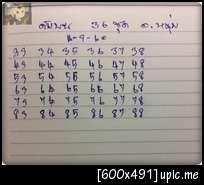 36 ชุด อ.หนุ่ม
33 34 35 36 37 38
43 44 45 46 47 48
53 54 55 56 57 58
63 64 65 66 67 68
73 74 75 76 77 78
83 84 85 86 87 88
[600x491]upic.me